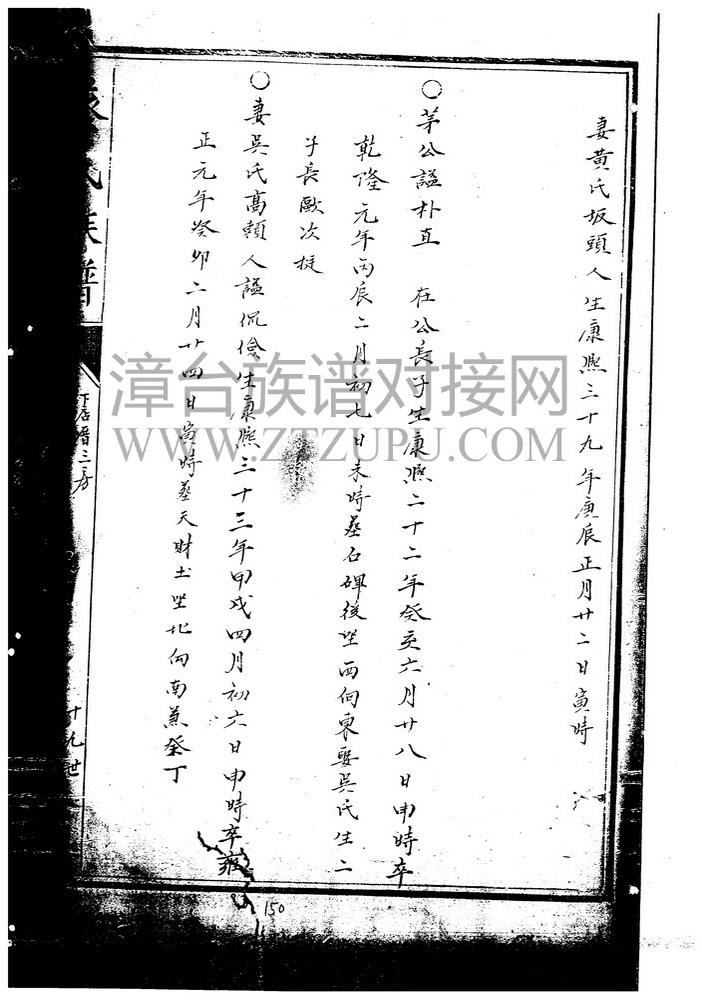 妻黄氏坂頭人生康熙三十九年庚辰正月廿二日寅時
○第公諡朴直 在公長子生康熙二十二年癸亥六月廿八日申時卒
乾隆元年丙辰二月初七日未時墓石碑後坐西向東娶吳氏生二
子長歐次挺
○妻吳氏高賴人諡侃儉生康熙三十三年甲戌四月初六日申時卒雍
正元年癸卯二月廿四日寅時墓天財土坐北向南兼癸丁
氏族譜
三房
十九世
150
漳台族谱对接网
WWW.ZTZUPU.COM